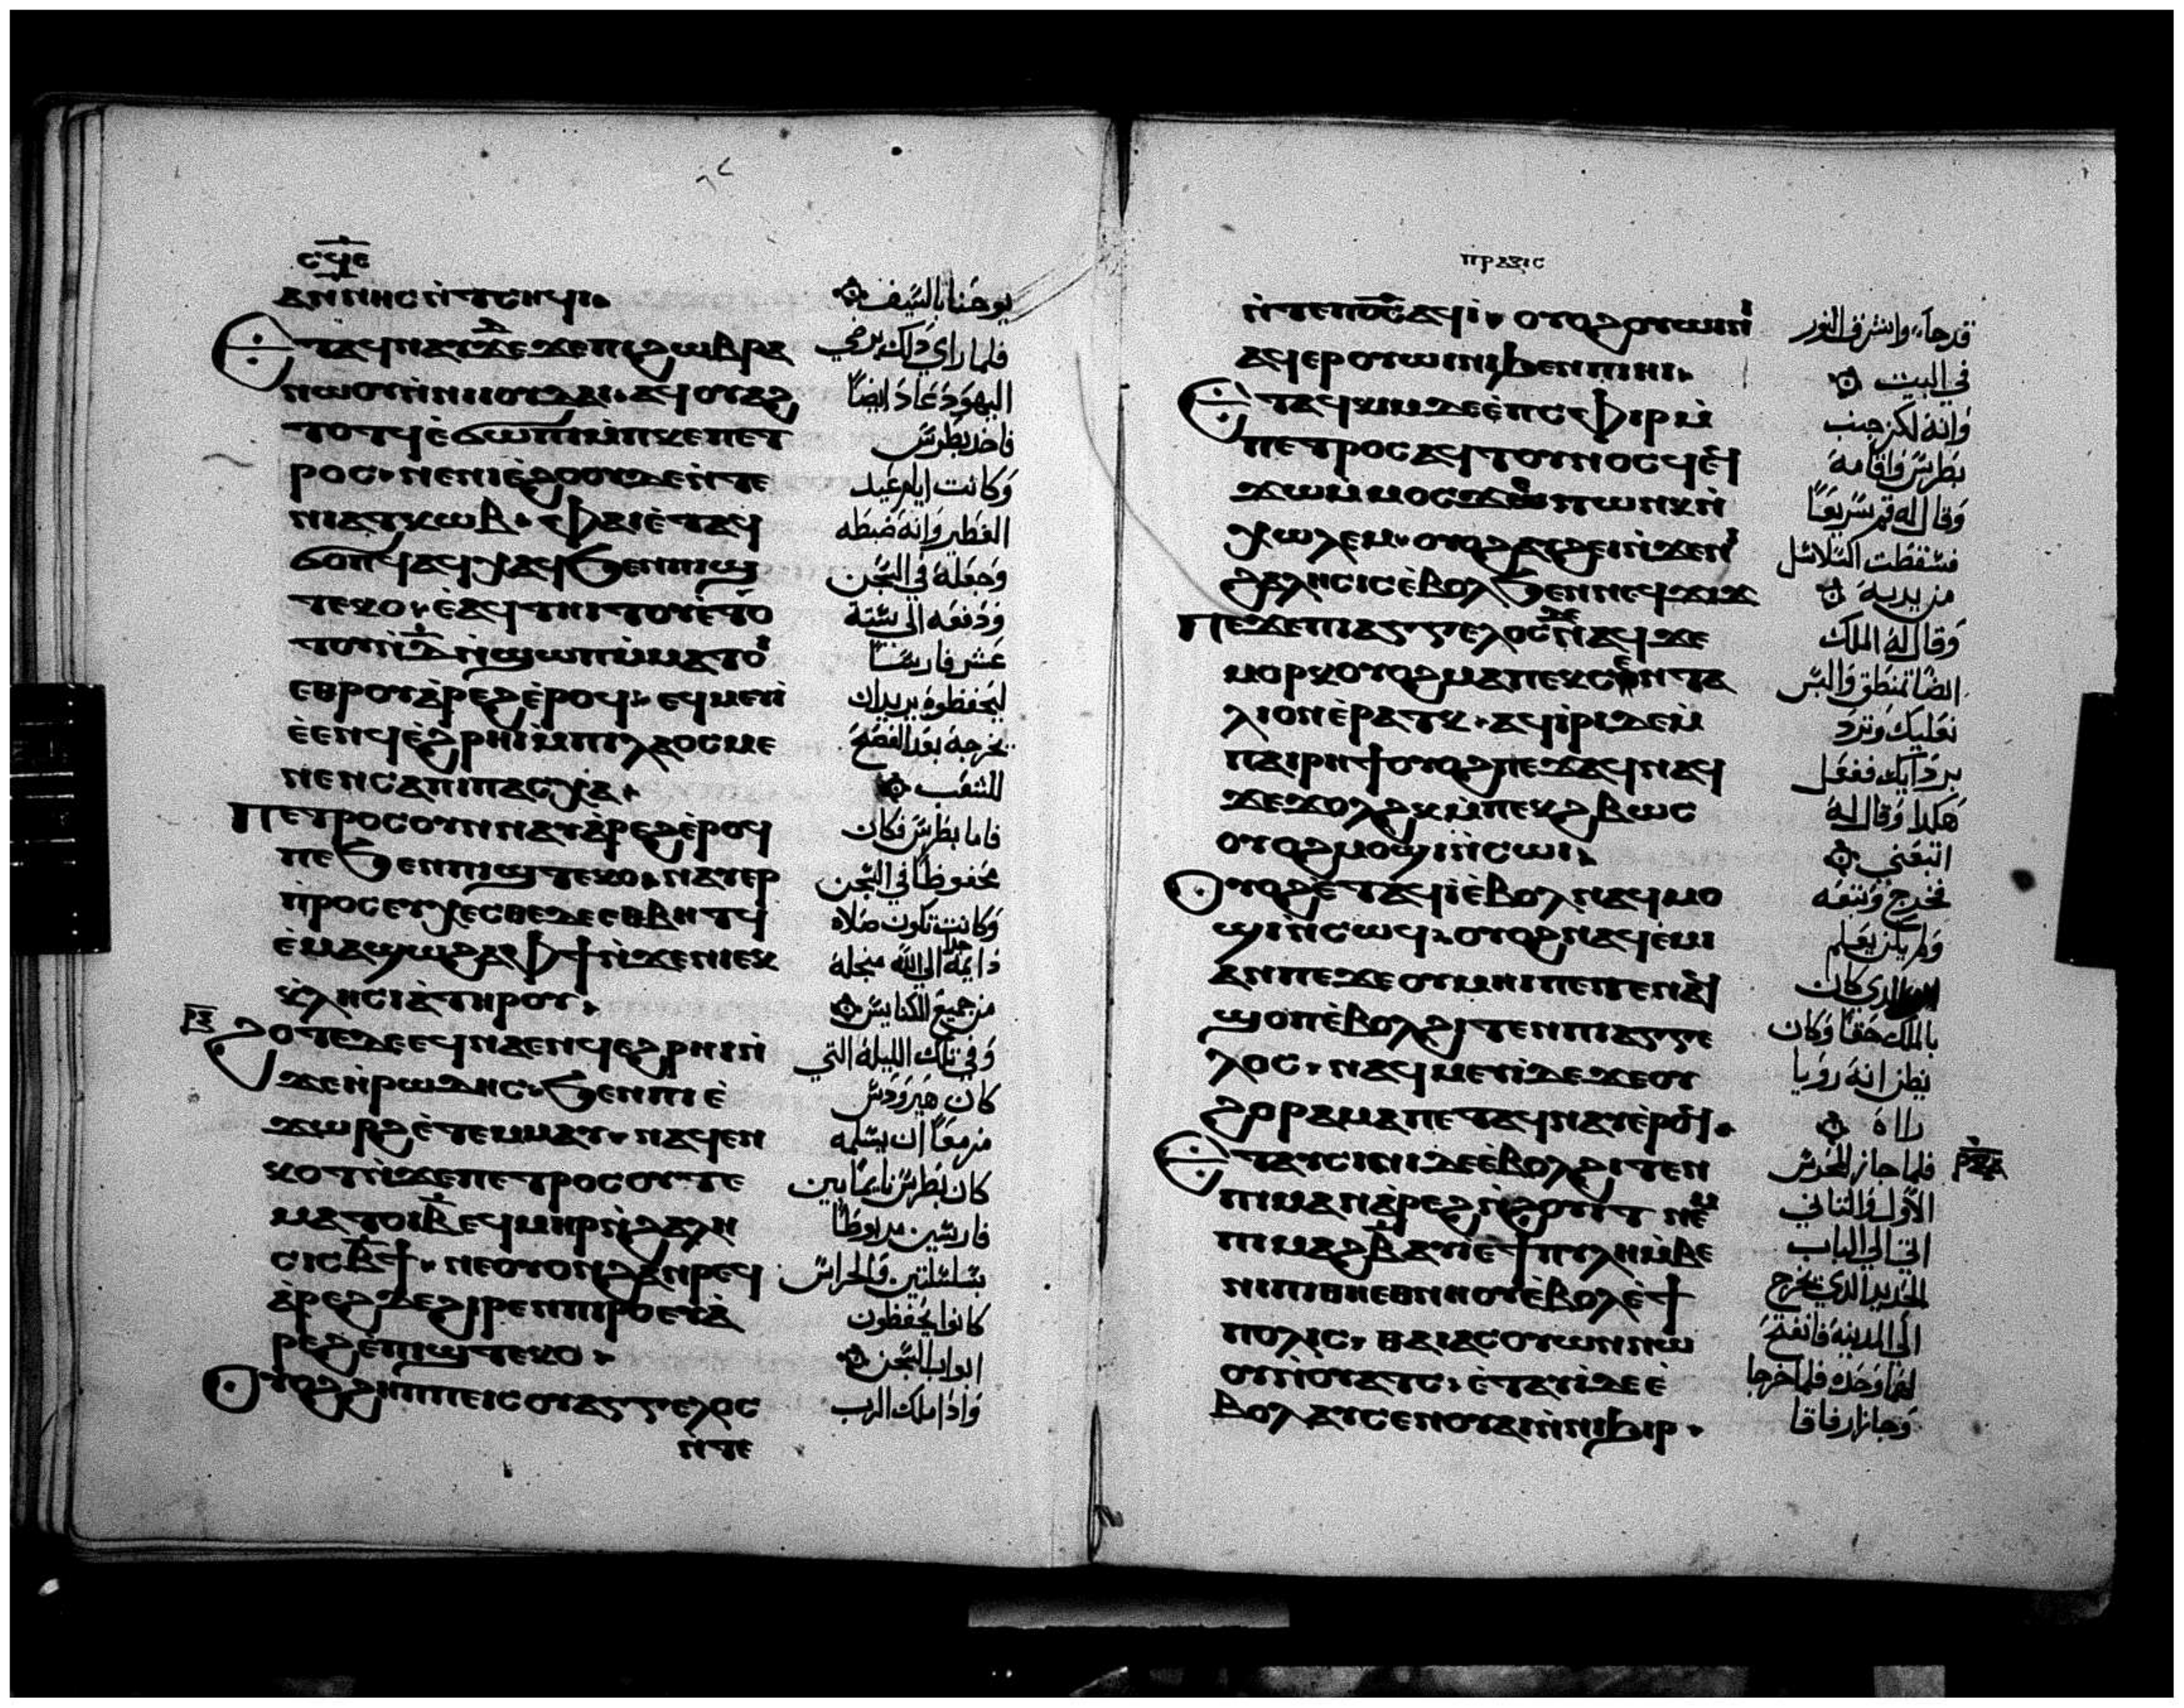 ⲥϥⲉ
ⲁⲛⲛⲏⲥ ⲛ̀ⲧⲥⲏϥⲓ
يوحنا بالسيف
ⲉⲧⲁϥⲛⲁⲩ ⲇⲉ ϫⲉ ⲡⲓϩⲱⲃ ⲣⲁ
فلما راي ذلك يرضي
ⲛⲱⲟⲩ ⲛ̀ⲛⲓⲓⲟⲩⲇⲁⲓ ⲁϥⲟⲩⲁϩ
اليهود عاد ايضا
ⲧⲟⲧϥ ⲉ̀ϭⲱⲡⲓ ⲙ̀ⲡⲕⲉⲡⲉⲧ
فاخد بطرس
ⲣⲟⲥ ⲛⲉ ⲛⲓⲉ̀ϩⲟⲟⲩ ⲇⲉ ⲛ̀ⲧⲉ
وكانت ايام عيد
ⲛⲓⲁⲧⲕⲱⲃ ⲫⲁⲓ ⲉ̀ⲧⲁϥ
الفطير وانه ضبطه
ϭⲟⲡϥ ⲁϥⲭⲁϥ ϧⲉⲛ ⲡⲓϣ
وجعله في السجن
ⲧⲉⲕⲟ ⲉ̀ⲁϥⲧⲏⲓⲧⲟⲩ ⲉ̀ⲧⲟ
ودفعه الي ستة
ⲧⲟⲩ ⲛ̀ⲇ̅ ⲛ̀ϣⲱⲡ ⲙ̀ⲙⲁⲧⲟⲓ
عشر فارسا
ⲉⲑⲣⲟⲩⲁ̀ⲣⲉϩ ⲉ̀ⲣⲟϥ ⲉϥⲙⲉⲩⲓ
ليحفظوه يريد ان
ⲉ̀ⲉⲛϥ ⲉ̀ϩⲣⲏⲓ ⲙ̀ⲡⲓⲗⲁⲟⲥ ⲙⲉ
يخرجه بعد الفصح
ⲛⲉⲛⲥⲁ ⲡⲓⲡⲁⲥⲭⲁ
للشعب
ⲡⲉⲧⲣⲟⲥ ⲟⲩⲛ ⲛⲁⲩⲁ̀ⲣⲉϩ ⲉ̀ⲣⲟϥ
فاما بطرس فكان
ⲡⲉ ϧⲉⲛ ⲡⲓϣⲧⲉⲕⲟ ⲛⲁⲩⲉⲣ
محفوظا في السجن
ⲡ̀ⲣⲟⲥⲉⲩⲭⲉⲥⲑⲉ ⲇⲉ ⲉⲑⲃⲏⲧϥ
وكانت تكون صلاه
ⲉ̀ⲙⲁϣⲱ ϩⲁ ⲫϯ ⲛ̀ϫⲉ ⲛⲓⲉⲕ
دايمة الي الله من اجله
ⲕ̀ⲗⲏⲥⲓⲁ̀ ⲧⲏⲣⲟⲩ
من جميع الكنايس
ϩⲟⲧⲉ ⲇⲉ ⲉϥⲛⲁⲉⲛϥ ⲉϩⲣⲏⲓ ⲛ̀
وفي تلك الليلة التي
ϫⲉ ⲏ̀ⲣⲱⲇⲏⲥ ϧⲉⲛ ⲡⲓⲉ̀
كان هيرودس
ϫⲱⲣϩ ⲉ̀ⲧⲉⲙⲙⲁⲩ ⲛⲁϥⲉⲛ
مزمعا ان يسلمه
ⲕⲟⲧ ⲛ̀ϫⲉ ⲡⲉⲧⲣⲟⲥ ⲟⲩⲧⲉ
كان بطرس نايما بين
ⲙⲁⲧⲟⲓ ⲃ̅ ⲉϥⲙⲏⲣ ⲛ̀ϩⲁⲗⲏ
فارسين مربوطا
ⲥⲓⲥ ⲃ̅ϯ ⲛⲉ ⲟⲩⲟⲛ ϩⲁⲛⲣⲉϥ
بسلسلتين والحراس
ⲁ̀ⲣⲉϩ ⲇⲉ ϩⲓⲣⲉⲛ ⲡⲓⲣⲟ ⲉⲩⲁ̀
كانوا يحفظون
ⲣⲉϩ ⲉ̀ⲡⲓϣⲧⲉⲕⲟ
ابواب السجن
ⲟⲩⲟϩ ϩⲏⲡⲡⲉ ⲓⲥ ⲟⲩⲁⲅⲅⲉⲗⲟⲥ
واذا ملك الرب
ⲛ̀ⲧⲉ
ⲡⲣⲁⲝⲓⲥ
ⲛ̀ⲧⲉ ⲡⲟ̅ⲥ̅ ⲁϥⲓ̀ ⲟⲩⲟϩ ⲟⲩⲱⲓⲛⲓ
قد جاء وانتشرف النور
ⲁϥⲉⲣⲟⲩⲱⲓⲛⲓ ϧⲉⲛ ⲡⲓⲏⲓ
في البيت
ⲉⲧⲁϥⲕⲓⲙ ⲇⲉ ⲉ̀ⲡⲥⲫⲓⲣ ⲙ̀
وانه لكز جنب
ⲡⲉⲧⲣⲟⲥ ⲁϥⲧⲟⲩⲛⲟⲥϥ ⲉϥ
بطرس واقامه
ϫⲱ ⲙ̀ⲙⲟⲥ ϫⲉ ⲧⲱⲛⲕ ⲛ̀
وقال له قم سريعا
ⲭⲱⲗⲉⲙ ⲟⲩⲟϩ ⲁⲩϩⲉⲓ ⲛ̀ϫⲉ ⲛⲓ
فسقطت السلاسل
ϩⲁⲗⲏⲥⲓⲥ ⲉ̀ⲃⲟⲗ ϧⲉⲛ ⲛⲉϥϫⲓϫ
من يديه
ⲡⲉϫⲉ ⲡⲓⲁⲅⲅⲉⲗⲟⲥ ⲇⲉ ⲛⲁϥ ϫⲉ
وقال له الملك
ⲙⲟⲣⲕ ⲟⲩⲟϩ ⲙⲁ ⲡⲉⲕⲥⲉⲛⲧⲁ
ايضا تمنطق والبس
ⲗⲓⲟⲛ ⲉ̀ⲣⲁⲧⲕ ⲁϥⲓ̀ⲣⲓ ⲇⲉ ⲙ̀
نعليك وترد
ⲡⲁⲓⲣⲏϯ ⲟⲩⲟϩ ⲡⲉϫⲁϥ ⲛⲁϥ
بردايك ففعل
ϫⲉ ϫⲟⲗϩⲕ ⲙ̀ⲡⲉⲕϩⲃⲱⲥ
هكذا وقال له
ⲟⲩⲟϩ ⲙⲟϣⲓ ⲛ̀ⲥⲱⲓ
اتبعني
ⲟⲩⲟϩ ⲉ̀ⲧⲁϥⲓ̀ ⲉ̀ⲃⲟⲗ ⲛⲁϥⲙⲟ
فخرج وتبعه
ϣⲓ ⲛ̀ⲥⲱϥ ⲟⲩⲟϩ ⲛⲁϥⲉ̀ⲙⲓ
ولم يكن يعلم
ⲁⲛ ⲡⲉ ϫⲉ ⲟⲩⲙⲏⲓ ⲡⲉⲧⲉⲛⲁϥ
الذي كان
ϣⲟⲡ ⲉ̀ⲃⲟⲗ ϩⲓⲧⲉⲛ ⲡⲓⲁⲅⲅⲉ
بالملك حقا وكان
ⲗⲟⲥ ⲛⲁϥⲙⲉⲩⲓ̀ ⲇⲉ ϫⲉ ⲟⲩ
يظن انه رويا
ϩⲟⲣⲁⲙⲁ ⲡⲉⲧⲁϥⲛⲁⲩ ⲉ̀ⲣⲟϥ
راه
ⲉⲧⲁⲩⲥⲓⲛⲓ ⲇⲉ ⲉ̀ⲃⲟⲗ ϩⲓⲧⲉⲛ
فلما جاز المحرس
ⲡⲓⲙⲁⲛⲁ̀ⲣⲉϩ ⲛ̀ϩⲟⲩⲓⲧ ⲛⲉⲙ
الاول والتاني
ⲡⲓⲙⲁϩⲃ̅ ⲁⲩⲓ̀ ⲉ̀ϯⲡⲩⲗⲏ ⲙ̀ⲃⲉ
اتي الي الباب
ⲛⲓⲡⲓ ⲑⲏ ⲉⲑⲛⲏⲟⲩ ⲉ̀ⲃⲟⲗ ⲉ̀ϯ
الحديد الذي يخرج
ⲡⲟⲗⲓⲥ ⲑⲁⲓ ⲁⲥⲟⲩⲱⲛ ⲛⲱ
الي المدينة فانفتح
ⲟⲩ ⲛ̀ⲟⲩⲁⲧⲥ ⲉ̀ⲧⲁⲩⲓ̀ ⲇⲉ ⲉ̀
لهما وحده فلما خرجا
ⲃⲟⲗ ⲁⲩⲥⲉⲛ ⲟⲩⲁⲓ ⲛ̀ⲛⲓϧⲓⲣ
وجازا زقاقا